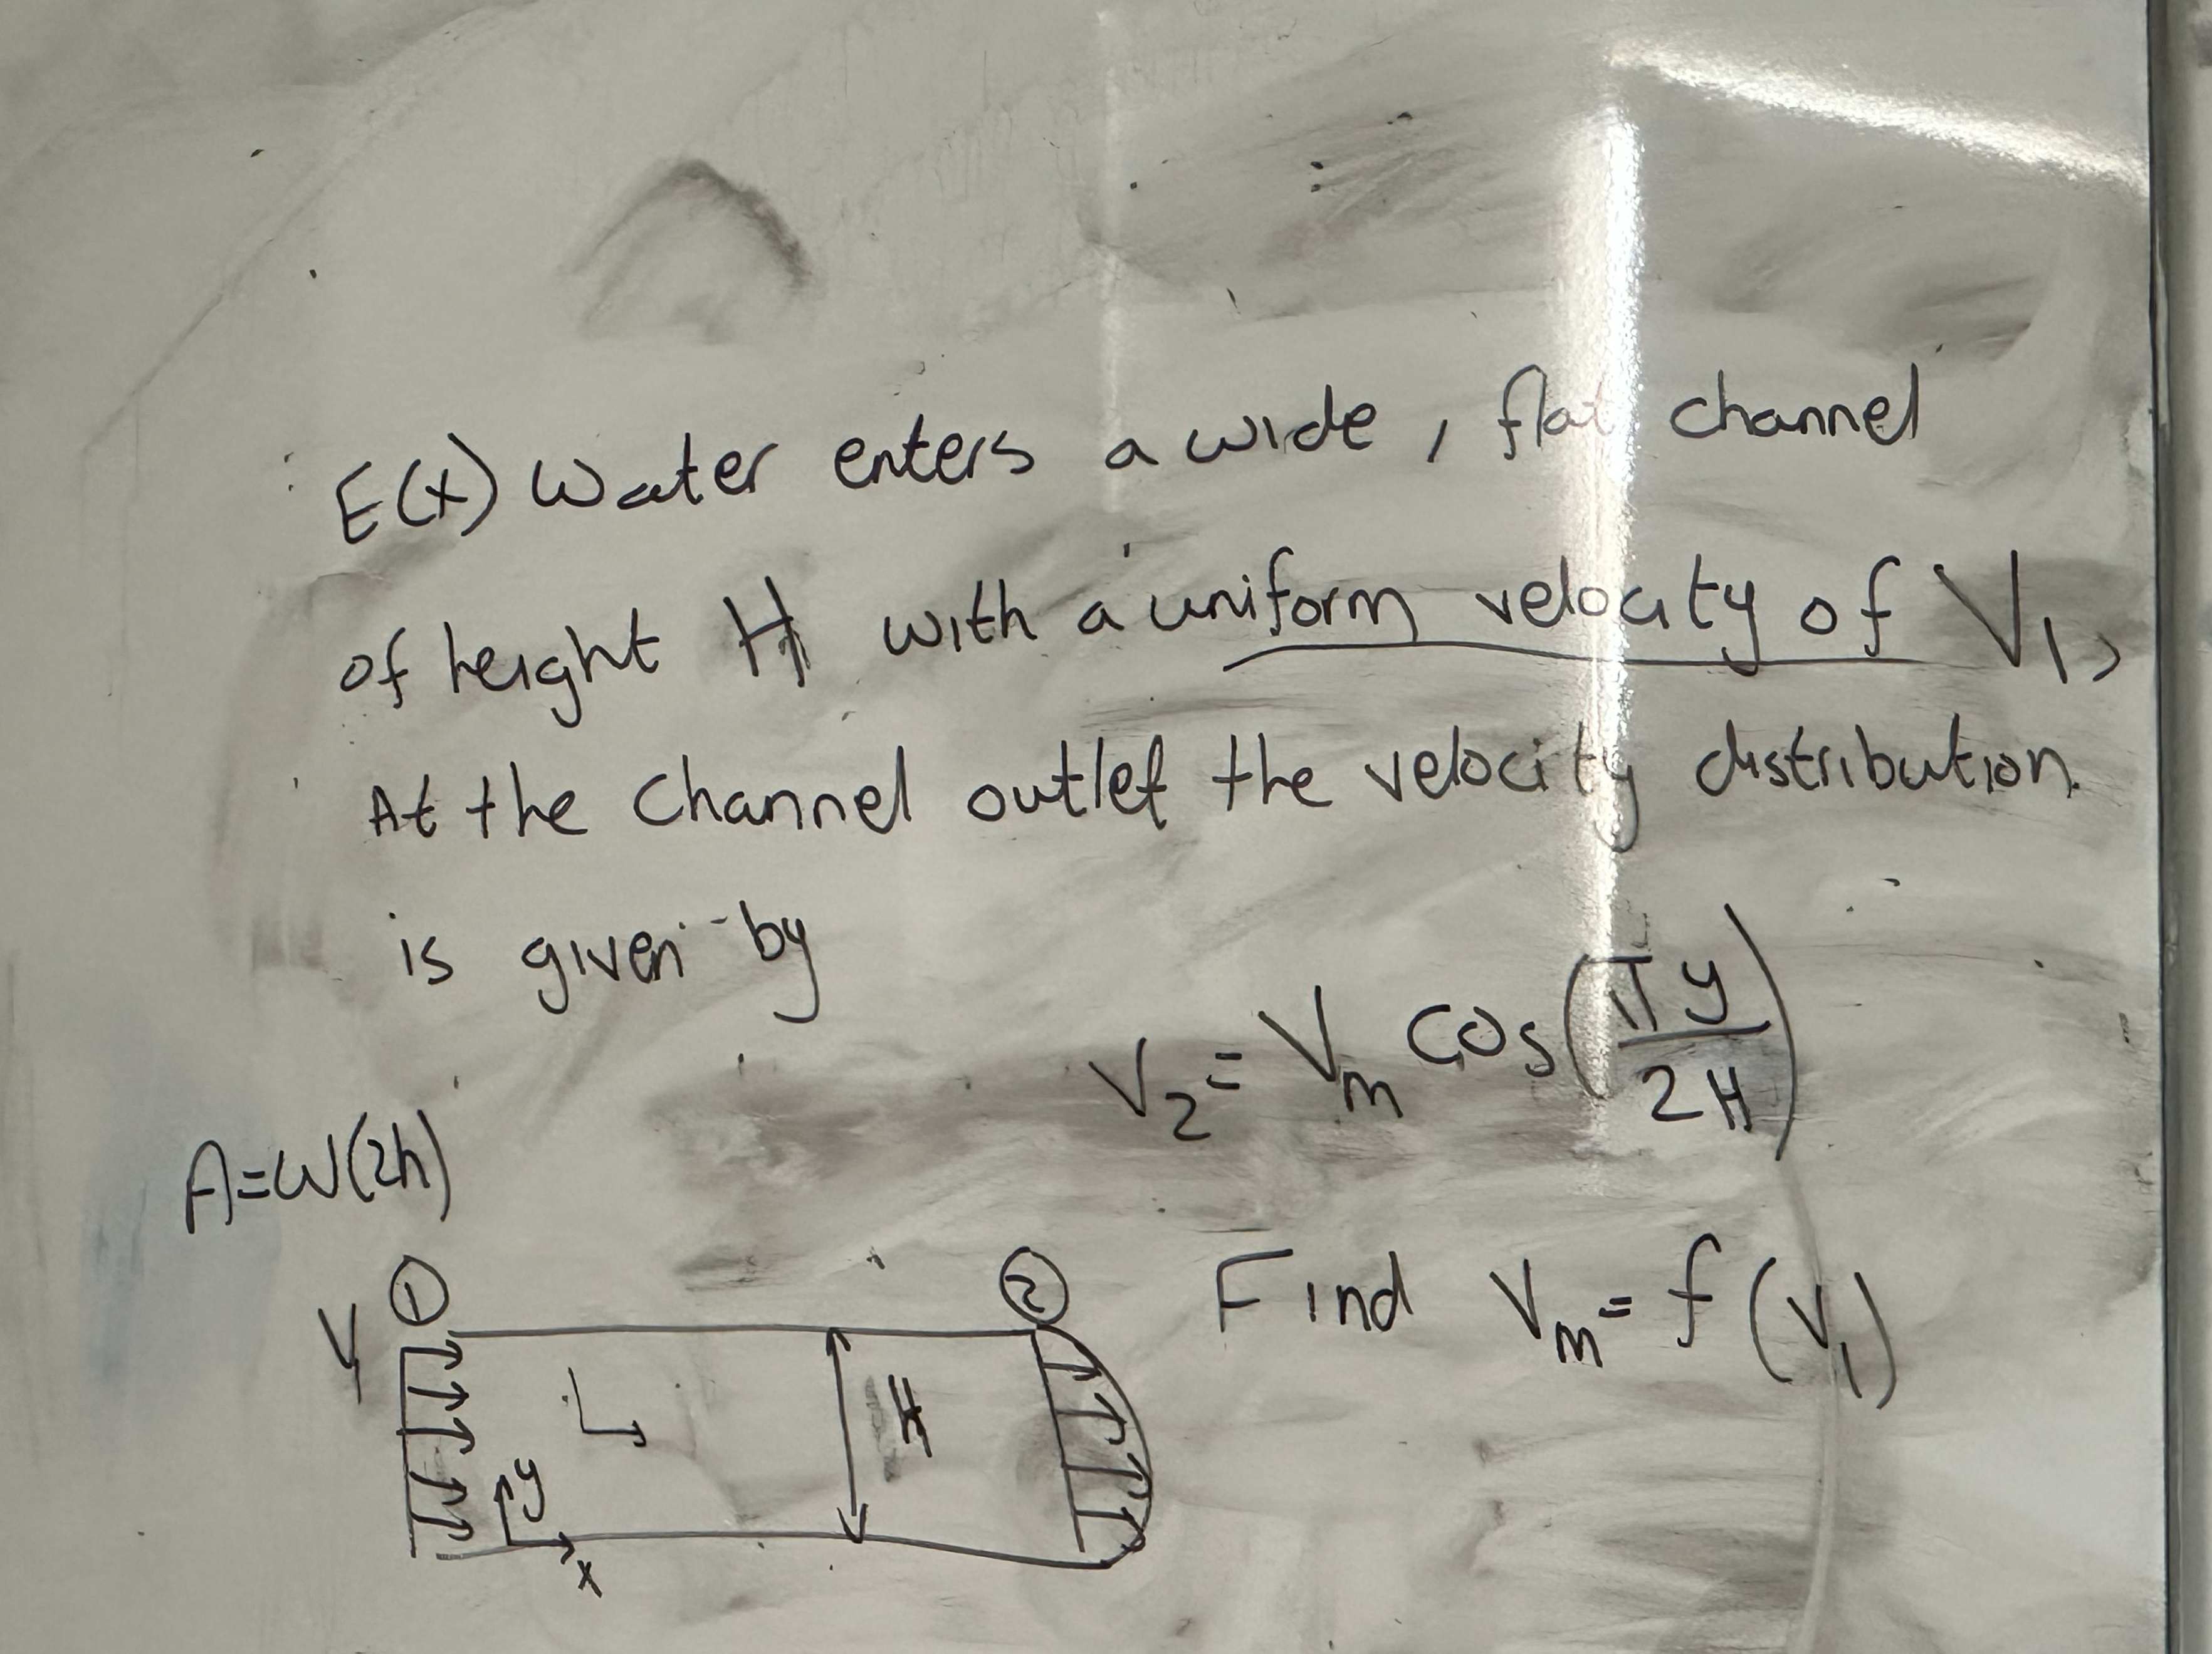 E(x) Water enters a wide, flat channel
of height H with a uniform velocity of V₁,
At the channel outlet the velocity distribution.
is given by
V₂ = Vₘ cos(πy/2H)
A=W(2h)
① ② Find Vₘ = f(V₁)
V₁
H
y
x